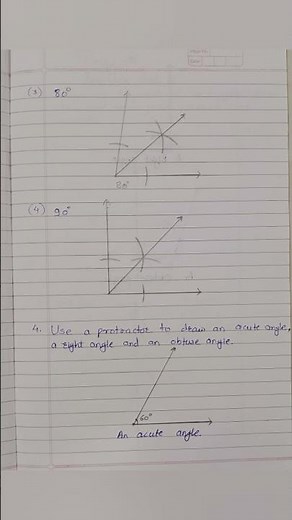 (3) 80°
80°
(4) 90°
4. Use a protractor to draw an acute angle,
a right angle and an obtuse angle.
60°
An acute angle.